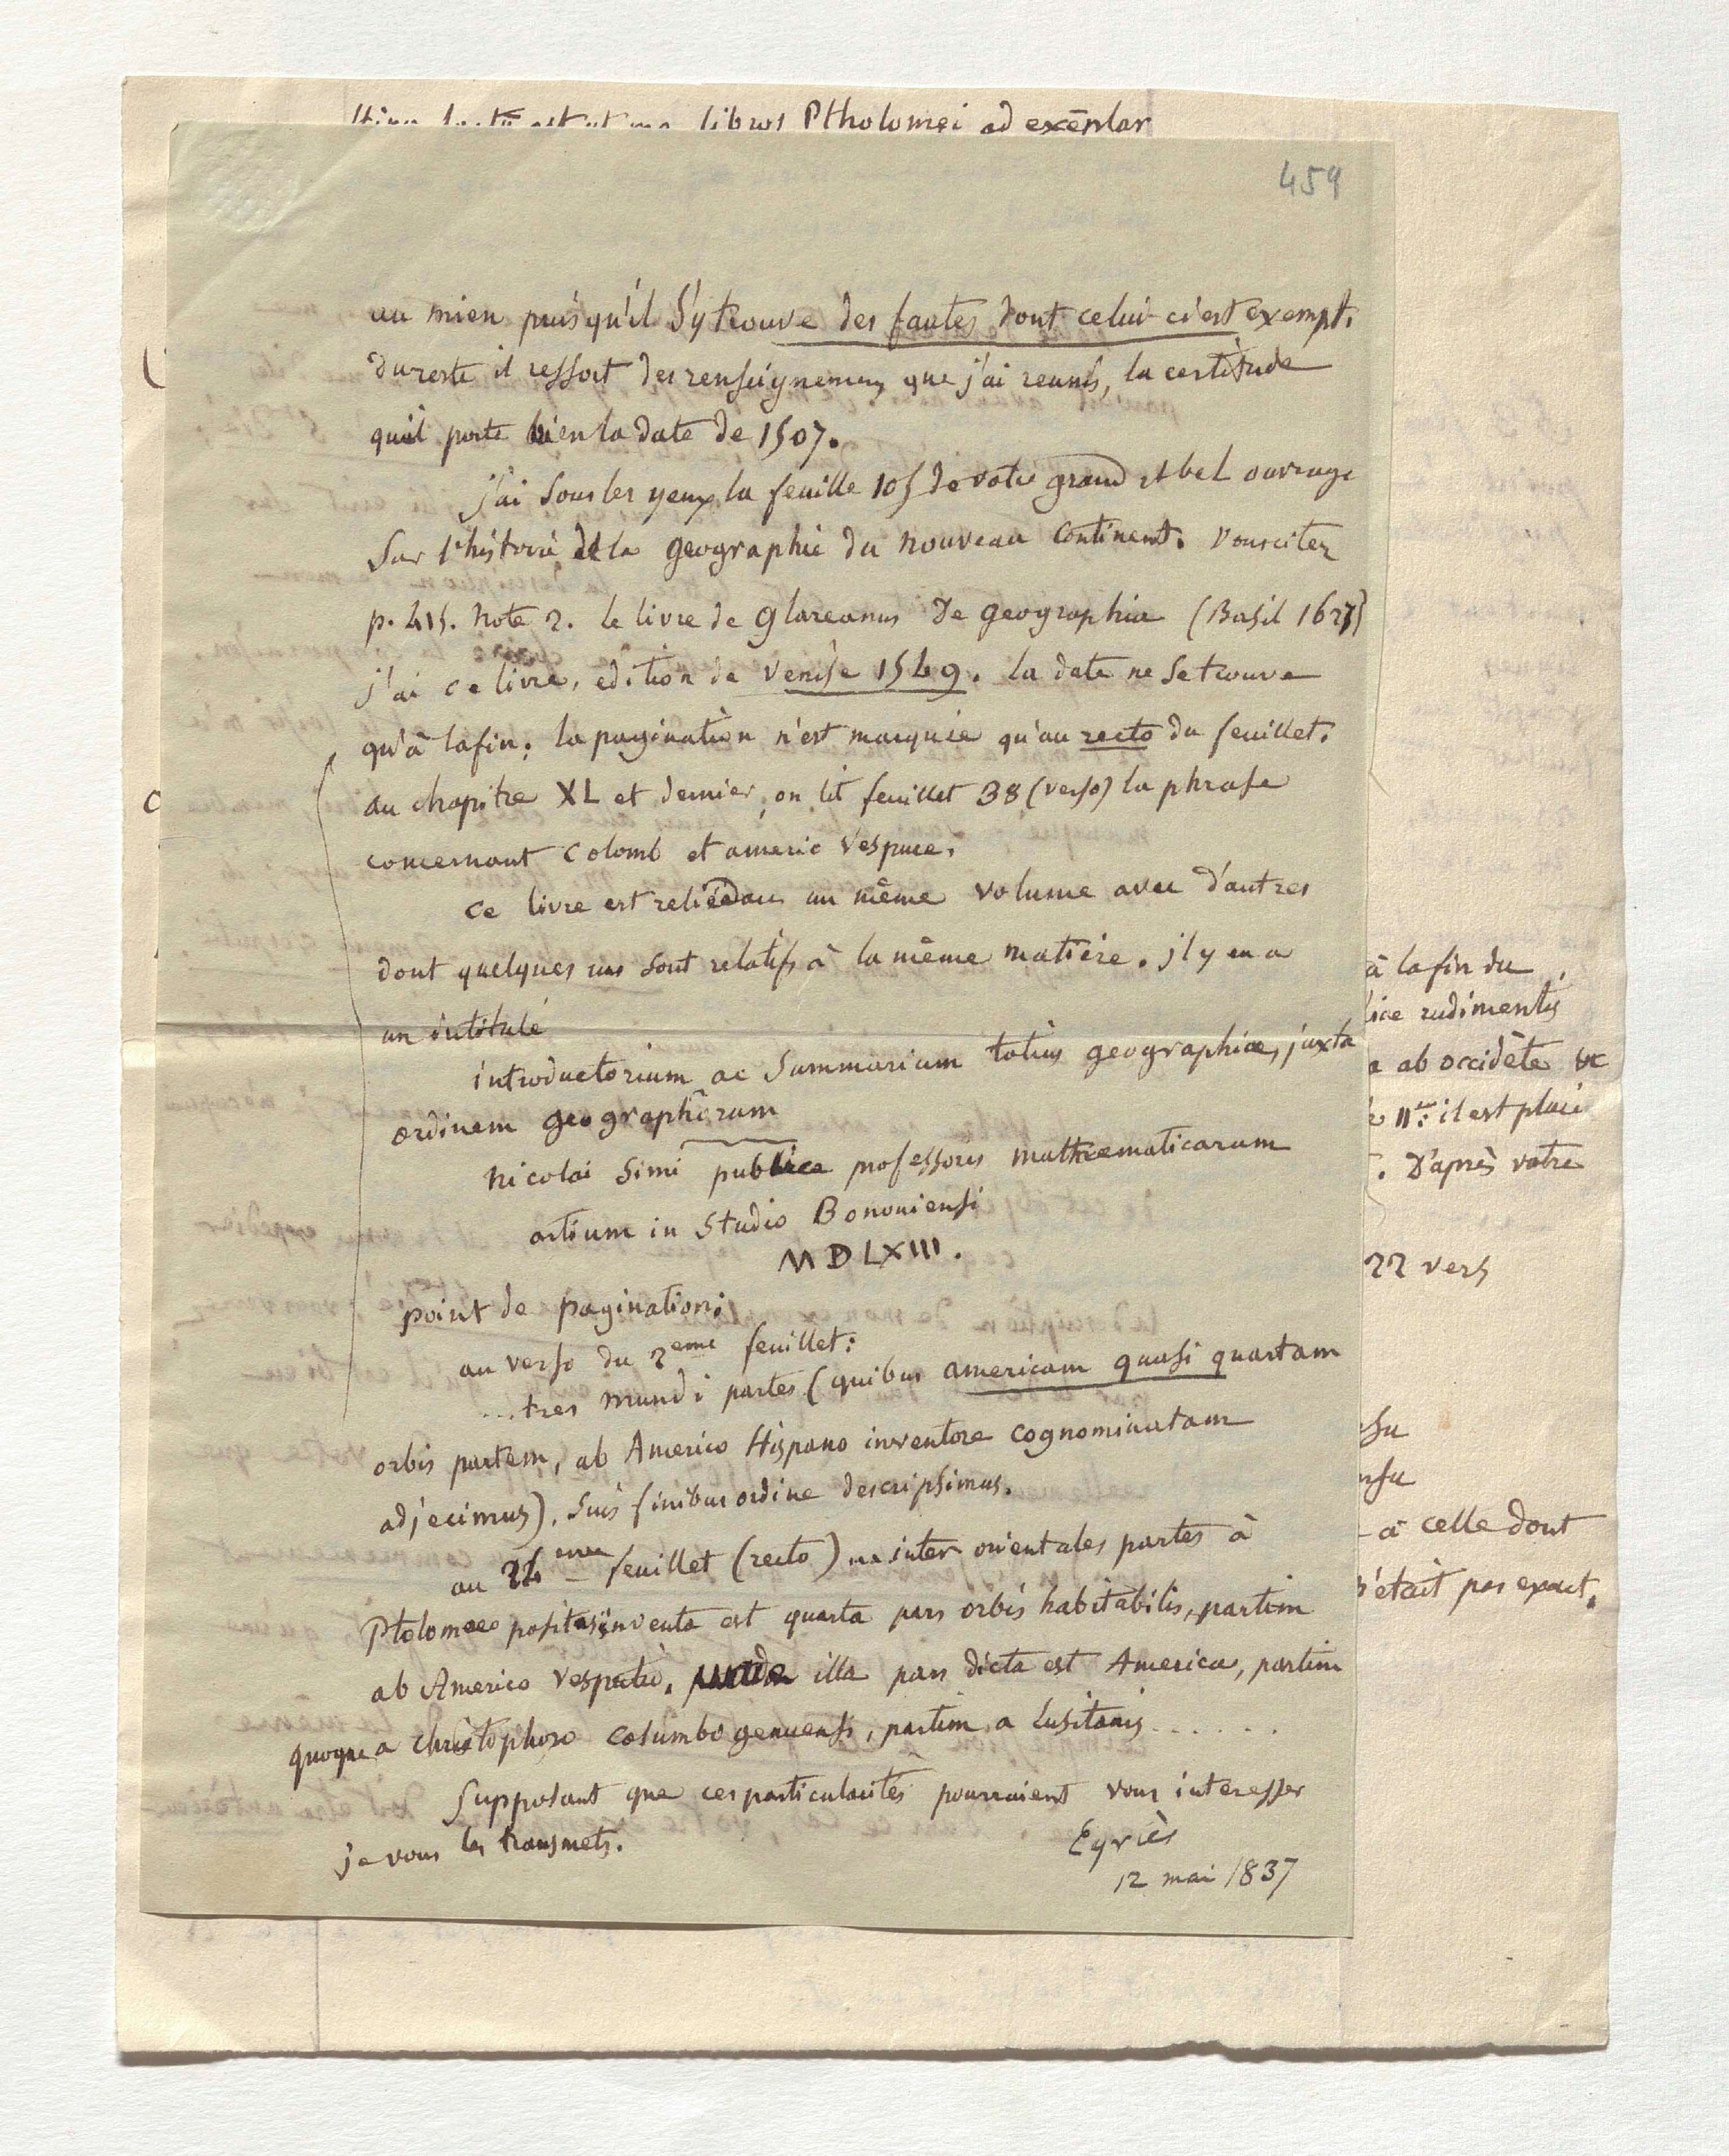 libros Ptholomei ad exēplar
459
au mien puisqu'il s'y trouve des fautes dont celui ci est exempt.
du reste il ressort des renseignemens que j'ai reunis, la certitude
qu'il porte bien la date de 1507.
j'ai sous les yeux la feuille 105 de votre grand et bel ouvrage
sur l'histoire de la geographie du nouveau continent. vous citez
p. 415. note 2. le livre de glareanus De geographia (Basil 1627)
j'ai ce livre, edition de Venise 1549. la date ne se trouve
qu'à la fin; la pagination n'est marquée qu'au recto du feuillet.
au chapitre XL et dernier, on lit feuillet 38 (verso) la phrase
concernant Colomb et americ Vespuce.
ce livre est relié dans un même volume avec d'autres
dont quelques uns sont relatifs à la même matière. il y en a
un intitulé
introductorium ac summarium totius geographiae, juxta
ordinem geographorum
nicolai Simi publice professoris mathematicarum
artium in Studio Bononiensi
MDLXIII.
point de pagination;
au verso du 2eme feuillet:
...tres mundi partes (quibus americam quasi quartam
orbis partem, ab Americo Hispano inventore cognominatam
adjecimus), suis finibus ordine descripsimus.
au 24eme feuillet (recto) ... inter orientales partes à
Ptolomaeo positas inventa est quarta pars orbis habitabilis, partim
ab Americo Vesputio, unde illa pars dicta est America, partim
quoque a Christophoro columbo genuensi, partim a Lusitanis......
Supposant que ces particularités pourraient vous interesser
je vous les transmets.
Eyriès
12 mai 1837
à la fin du
rudimentis
ab occidēte &c
il est placé
. D'après votre
22 vers
à celle dont
n'était pas exact.